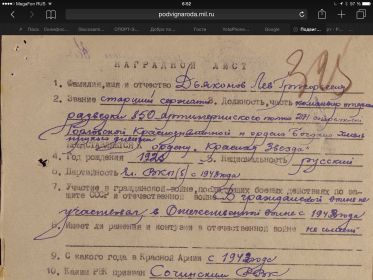 MegaFon RUS
6:52
97 %
podvignaroda.mil.ru
НАГРАДНОЙ ЛИСТ
395
1. Фамилия, имя и отчество Дьяконов Лев Григорьевич
2. Звание старший сержант 3. Должность, часть командир отделения
разведки 850 Артиллерийского полка 277 стрелковой
Краснознаменной и ордена Богдана Хмель
ницкого дивизии
Представляется к ордену „Красная Звезда"
4. Год рождения 5. Национальность русский
6. Партийность чл. ВКП(б) с 1943 года
7. Участие в гражданской войне, последующих боевых действиях по за-
щите СССР и отечественной войне В гражданской войне не
участвовал, в Отечественной войне с 1942 года
8. Имеет ли ранения и контузии в отечественной войне не имеет
9. С какого года в Красной Армии с 1942 года
10. Каким РВК призван Сочинским РВК